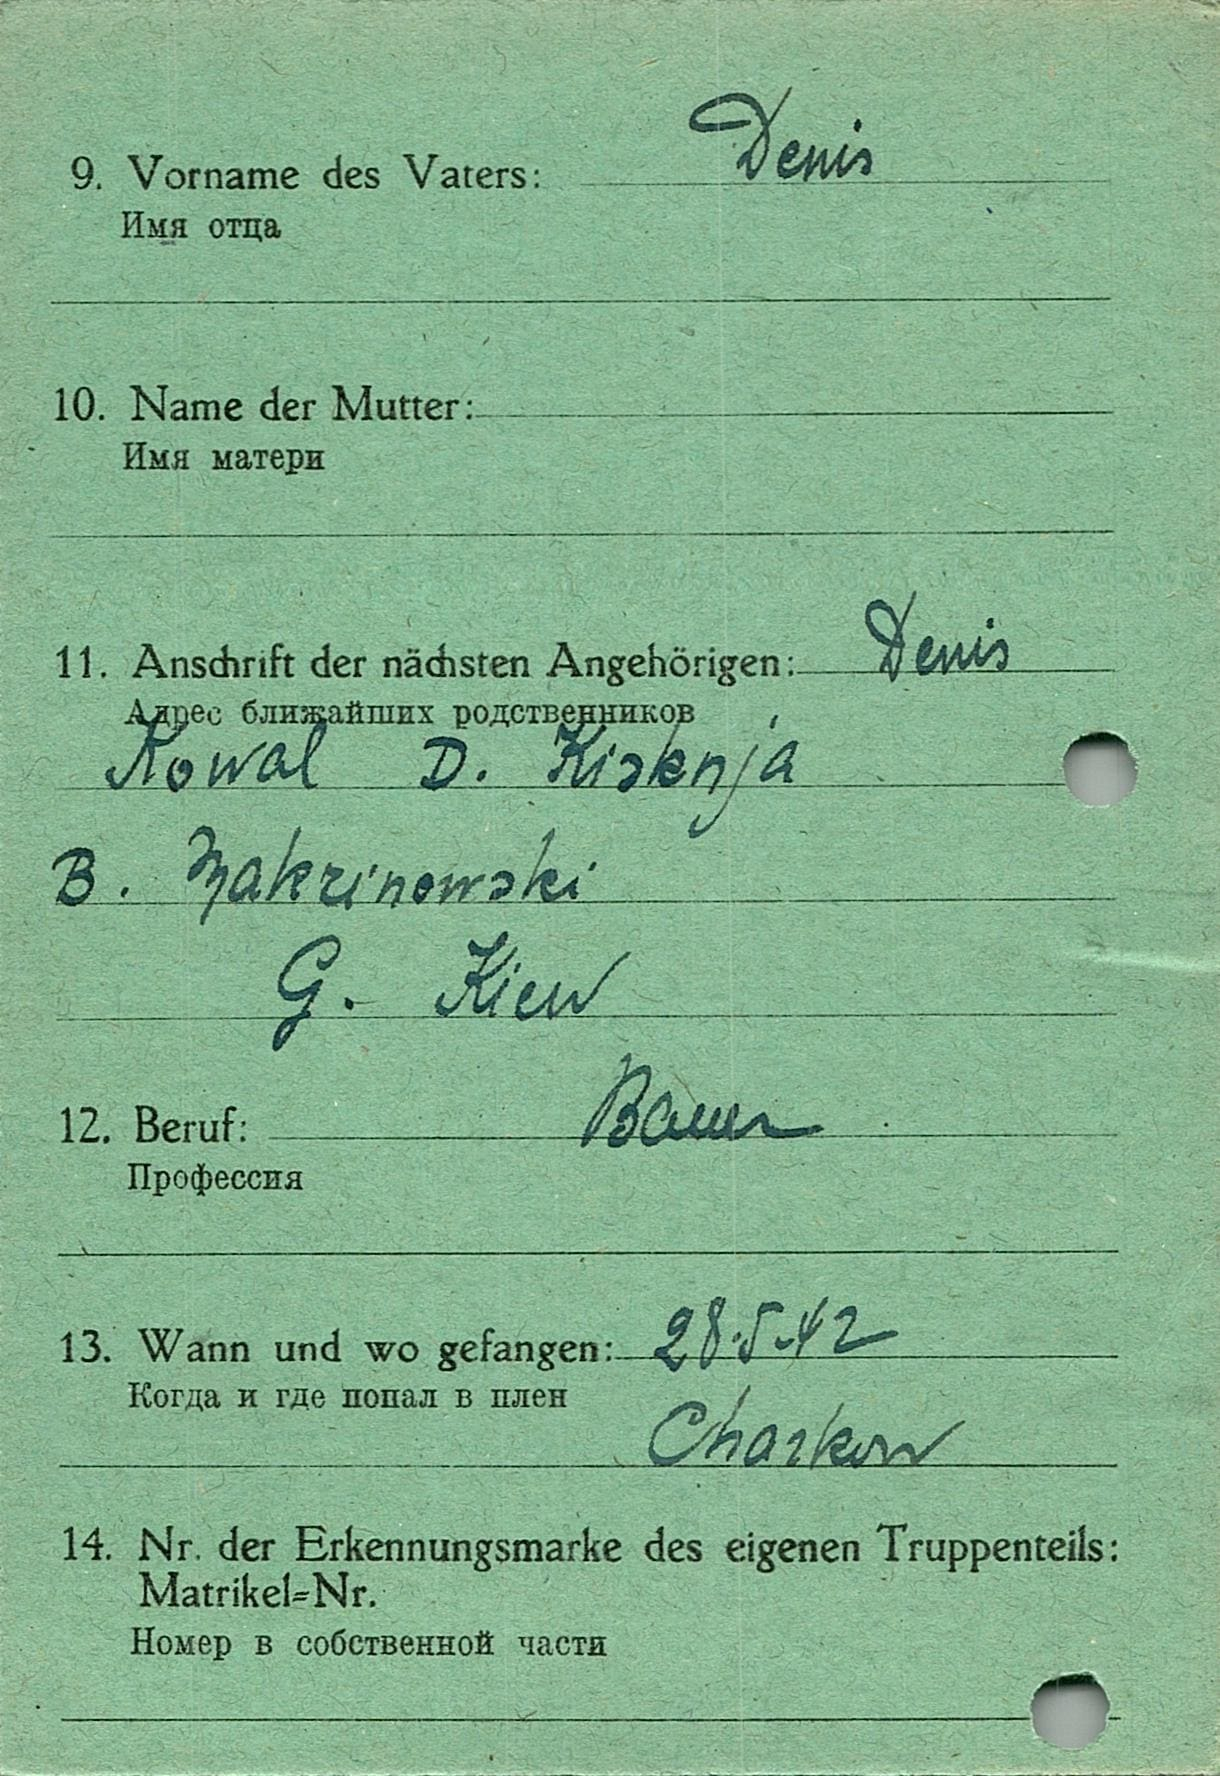 9. Vorname des Vaters: Denis
Имя отца
10. Name der Mutter:
Имя матери
11. Anschrift der nächsten Angehörigen: Denis
Адрес ближайших родственников
Kowal D. Kisknja
B. Makrinowski
G. Kiew
12. Beruf: Bauer
Профессия
13. Wann und wo gefangen: 28.5.42
Когда и где попал в плен
Charkow
14. Nr. der Erkennungsmarke des eigenen Truppenteils:
Matrikel=Nr.
Номер в собственной части